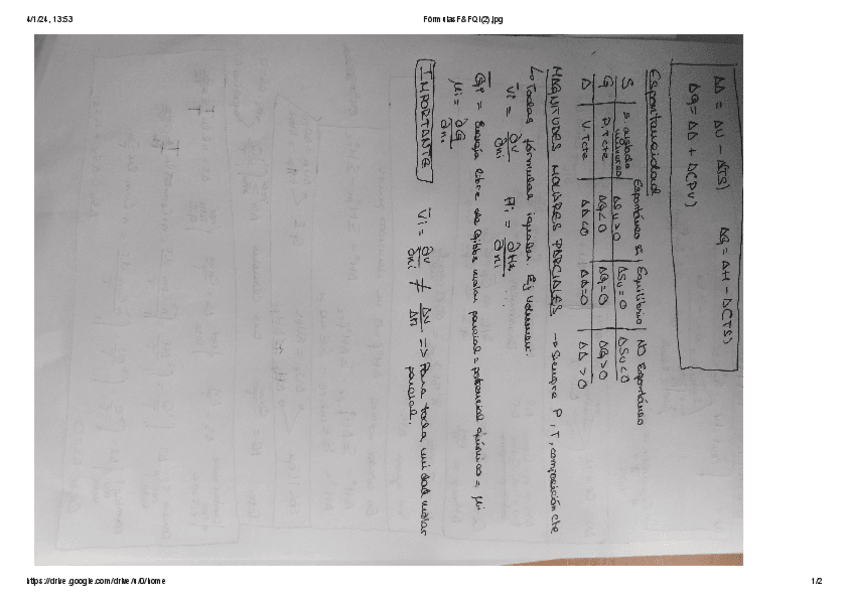 4/1/24, 13:53
Fórmulas F&FQI(2).jpg
ΔA = ΔU - Δ(TS)    ΔG = ΔH - Δ(TS)
ΔG = ΔA + Δ(PV)
Espontaneidad
Espontáneo | Equilibrio | NO Espontáneo
S | s. aislado universo | ΔSu>0 | ΔSu=0 | ΔSu<0
G | P,T cte | ΔG<0 | ΔG=0 | ΔG>0
A | V,T cte | ΔA<0 | ΔA=0 | ΔA>0
MAGNITUDES MOLARES PARCIALES → Siempre P, T, composición cte
↳ Todas fórmulas iguales. Ej Volumen:
V̄i = ∂V/∂ni    H̄i = ∂H/∂ni ...
Ḡi = Energía libre de Gibbs molar parcial = potencial químico = μi
μi = ∂G/∂ni
IMPORTANTE    V̄i = ∂V/∂ni ≠ ΔV/Δn => Para toda unidad molar
parcial.
https://drive.google.com/drive/u/0/home
1/2